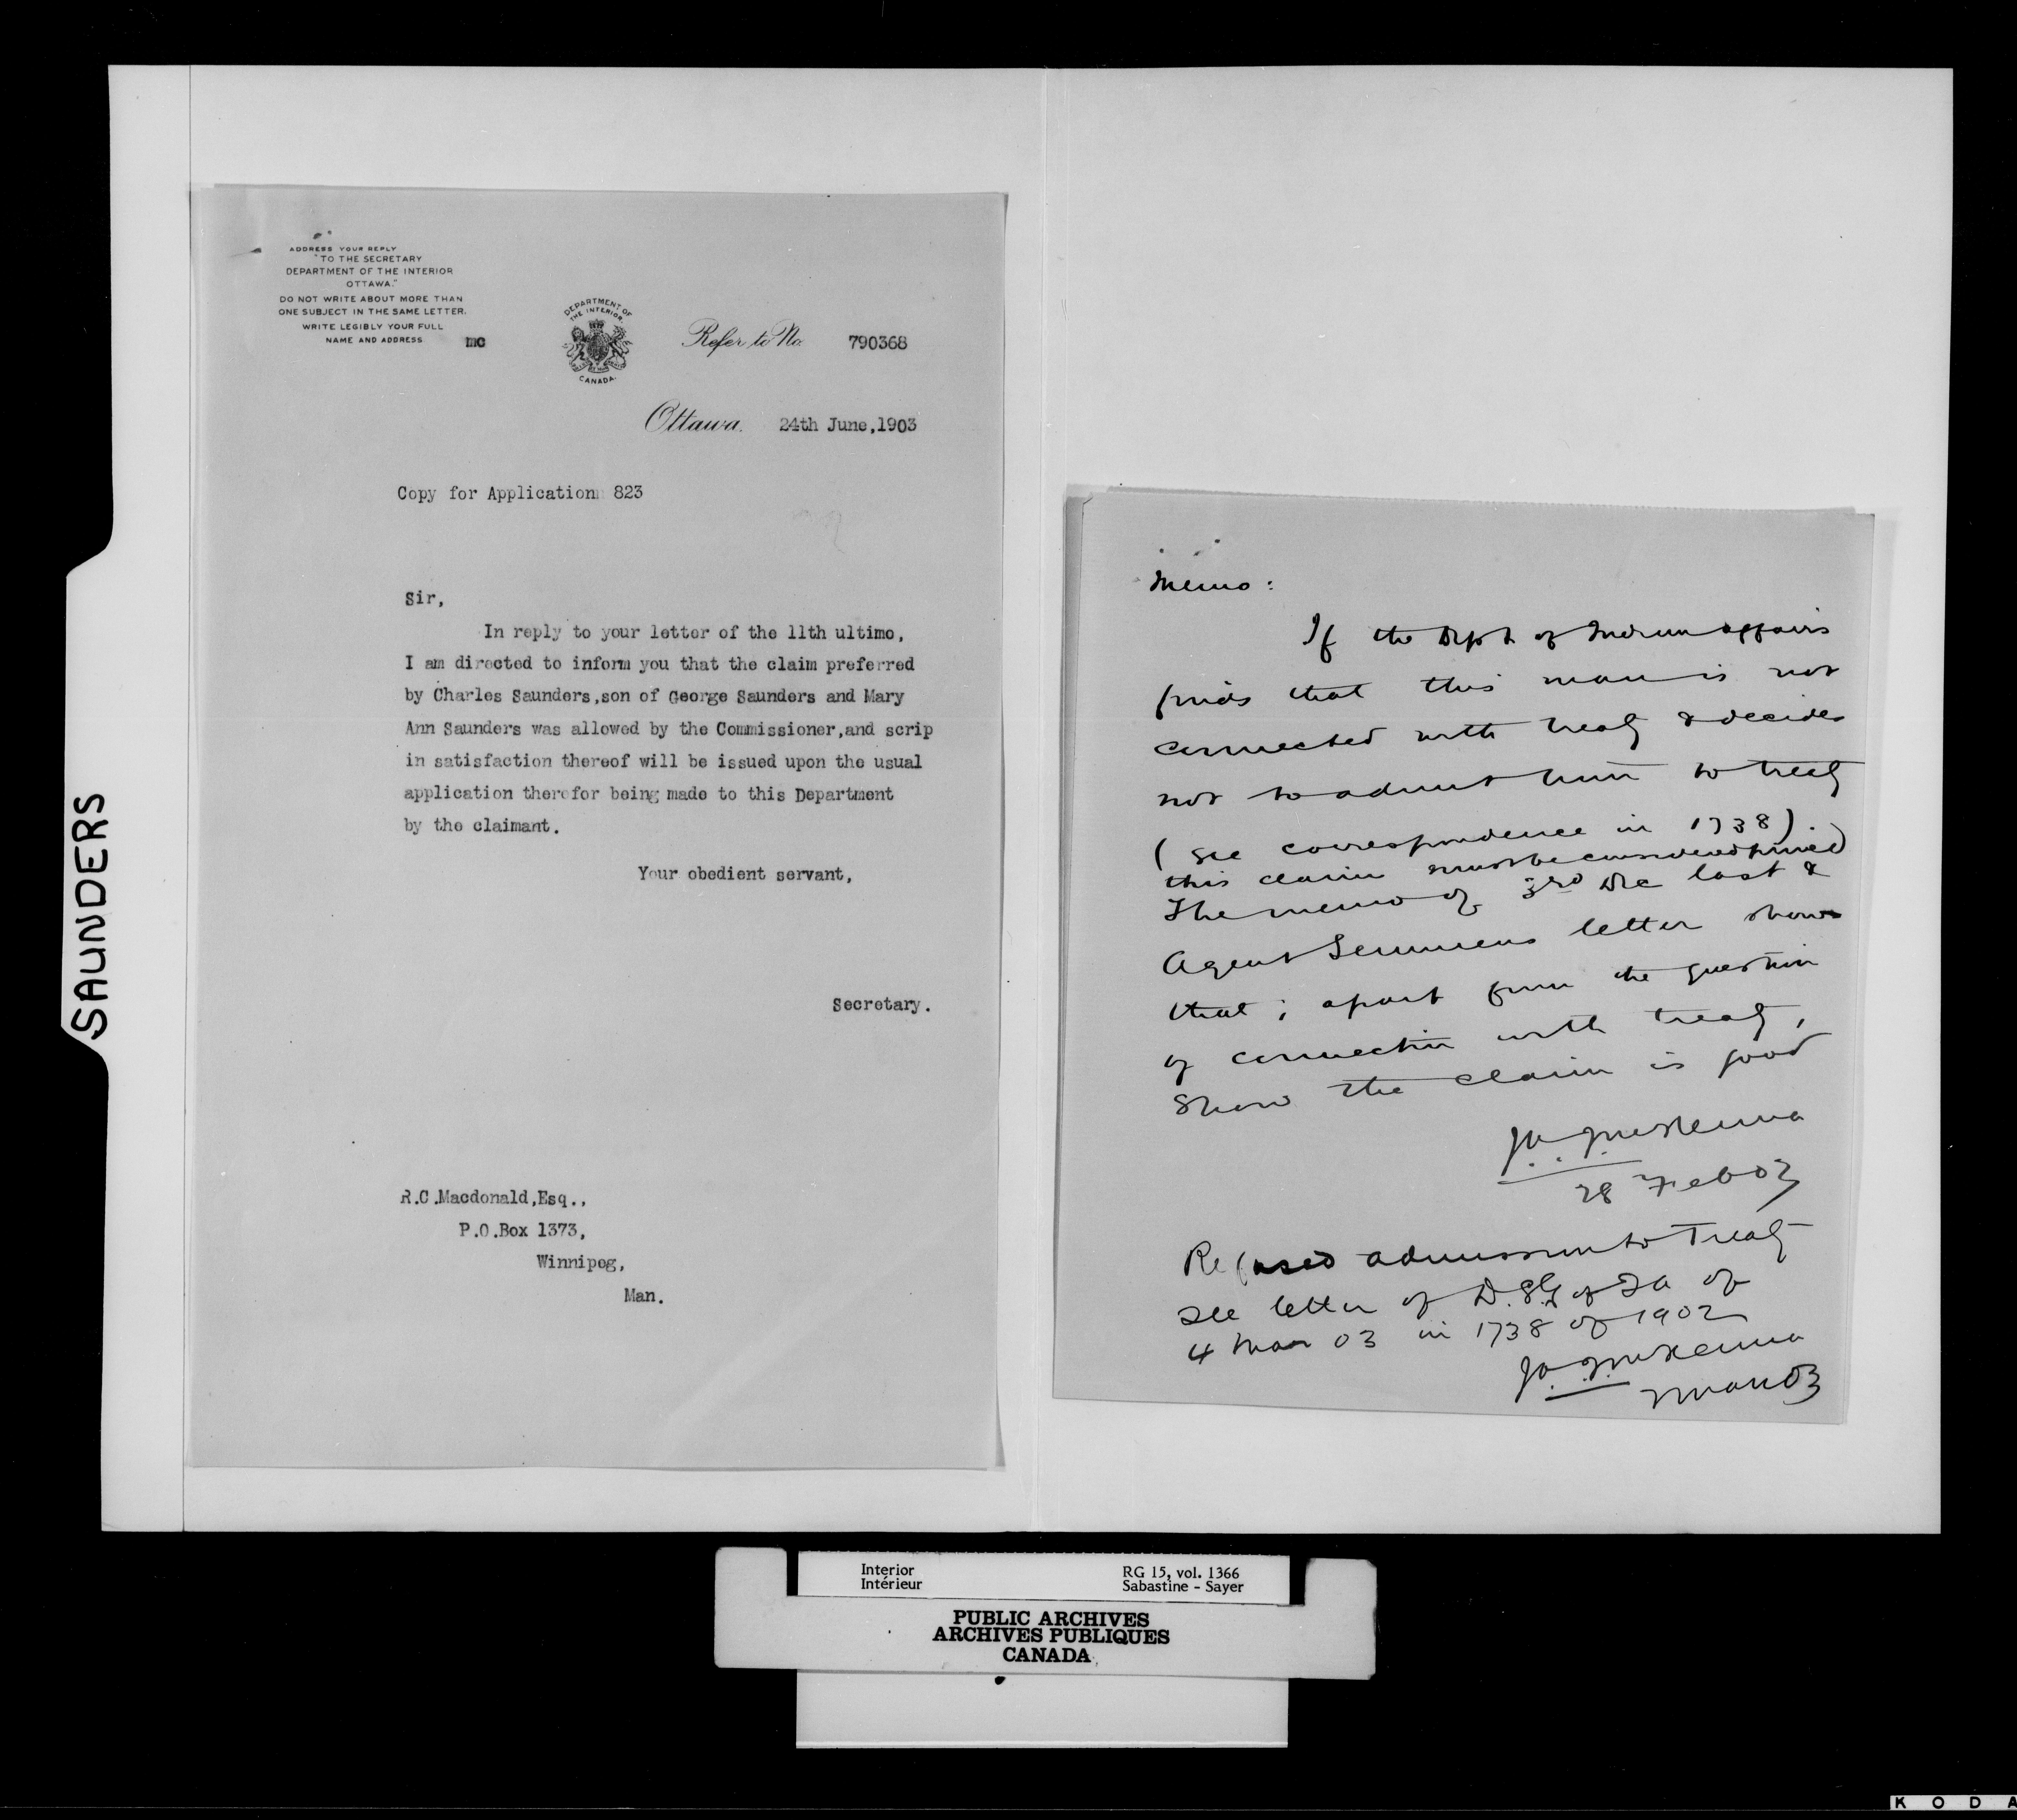 SAUNDERS
ADDRESS YOUR REPLY
"TO THE SECRETARY
DEPARTMENT OF THE INTERIOR
OTTAWA."
DO NOT WRITE ABOUT MORE THAN
ONE SUBJECT IN THE SAME LETTER.
WRITE LEGIBLY YOUR FULL
NAME AND ADDRESS
mc
DEPARTMENT OF
THE INTERIOR.
CANADA.
Refer to No. 790368
Ottawa. 24th June,1903
Copy for Application 823
Sir,
In reply to your letter of the 11th ultimo,
I am directed to inform you that the claim preferred
by Charles Saunders,son of George Saunders and Mary
Ann Saunders was allowed by the Commissioner,and scrip
in satisfaction thereof will be issued upon the usual
application therefor being made to this Department
by the claimant.
Your obedient servant,
Secretary.
R.C.Macdonald,Esq.,
P.O.Box 1373,
Winnipeg,
Man.
Memo:
If the Dept of Indian affairs
finds that this man is not
connected with treaty & decides
not to admit him to treaty
(see correspondence in 1738).
this claim must be considered proved
The memo of 3rd Dec last &
Agent Semmens letter shows
that; apart from the question
of connection with treaty,
show the claim is good
J.A.J. McKenna
28 Feb 03
Refused admission to Treaty
See letter of D.S.G. of I A of
4 Mar 03 in 1738 of 1902
J.A.J. McKenna
Mar 03
Interior
Intérieur
RG 15, vol. 1366
Sabastine - Sayer
PUBLIC ARCHIVES
ARCHIVES PUBLIQUES
CANADA
K O D A